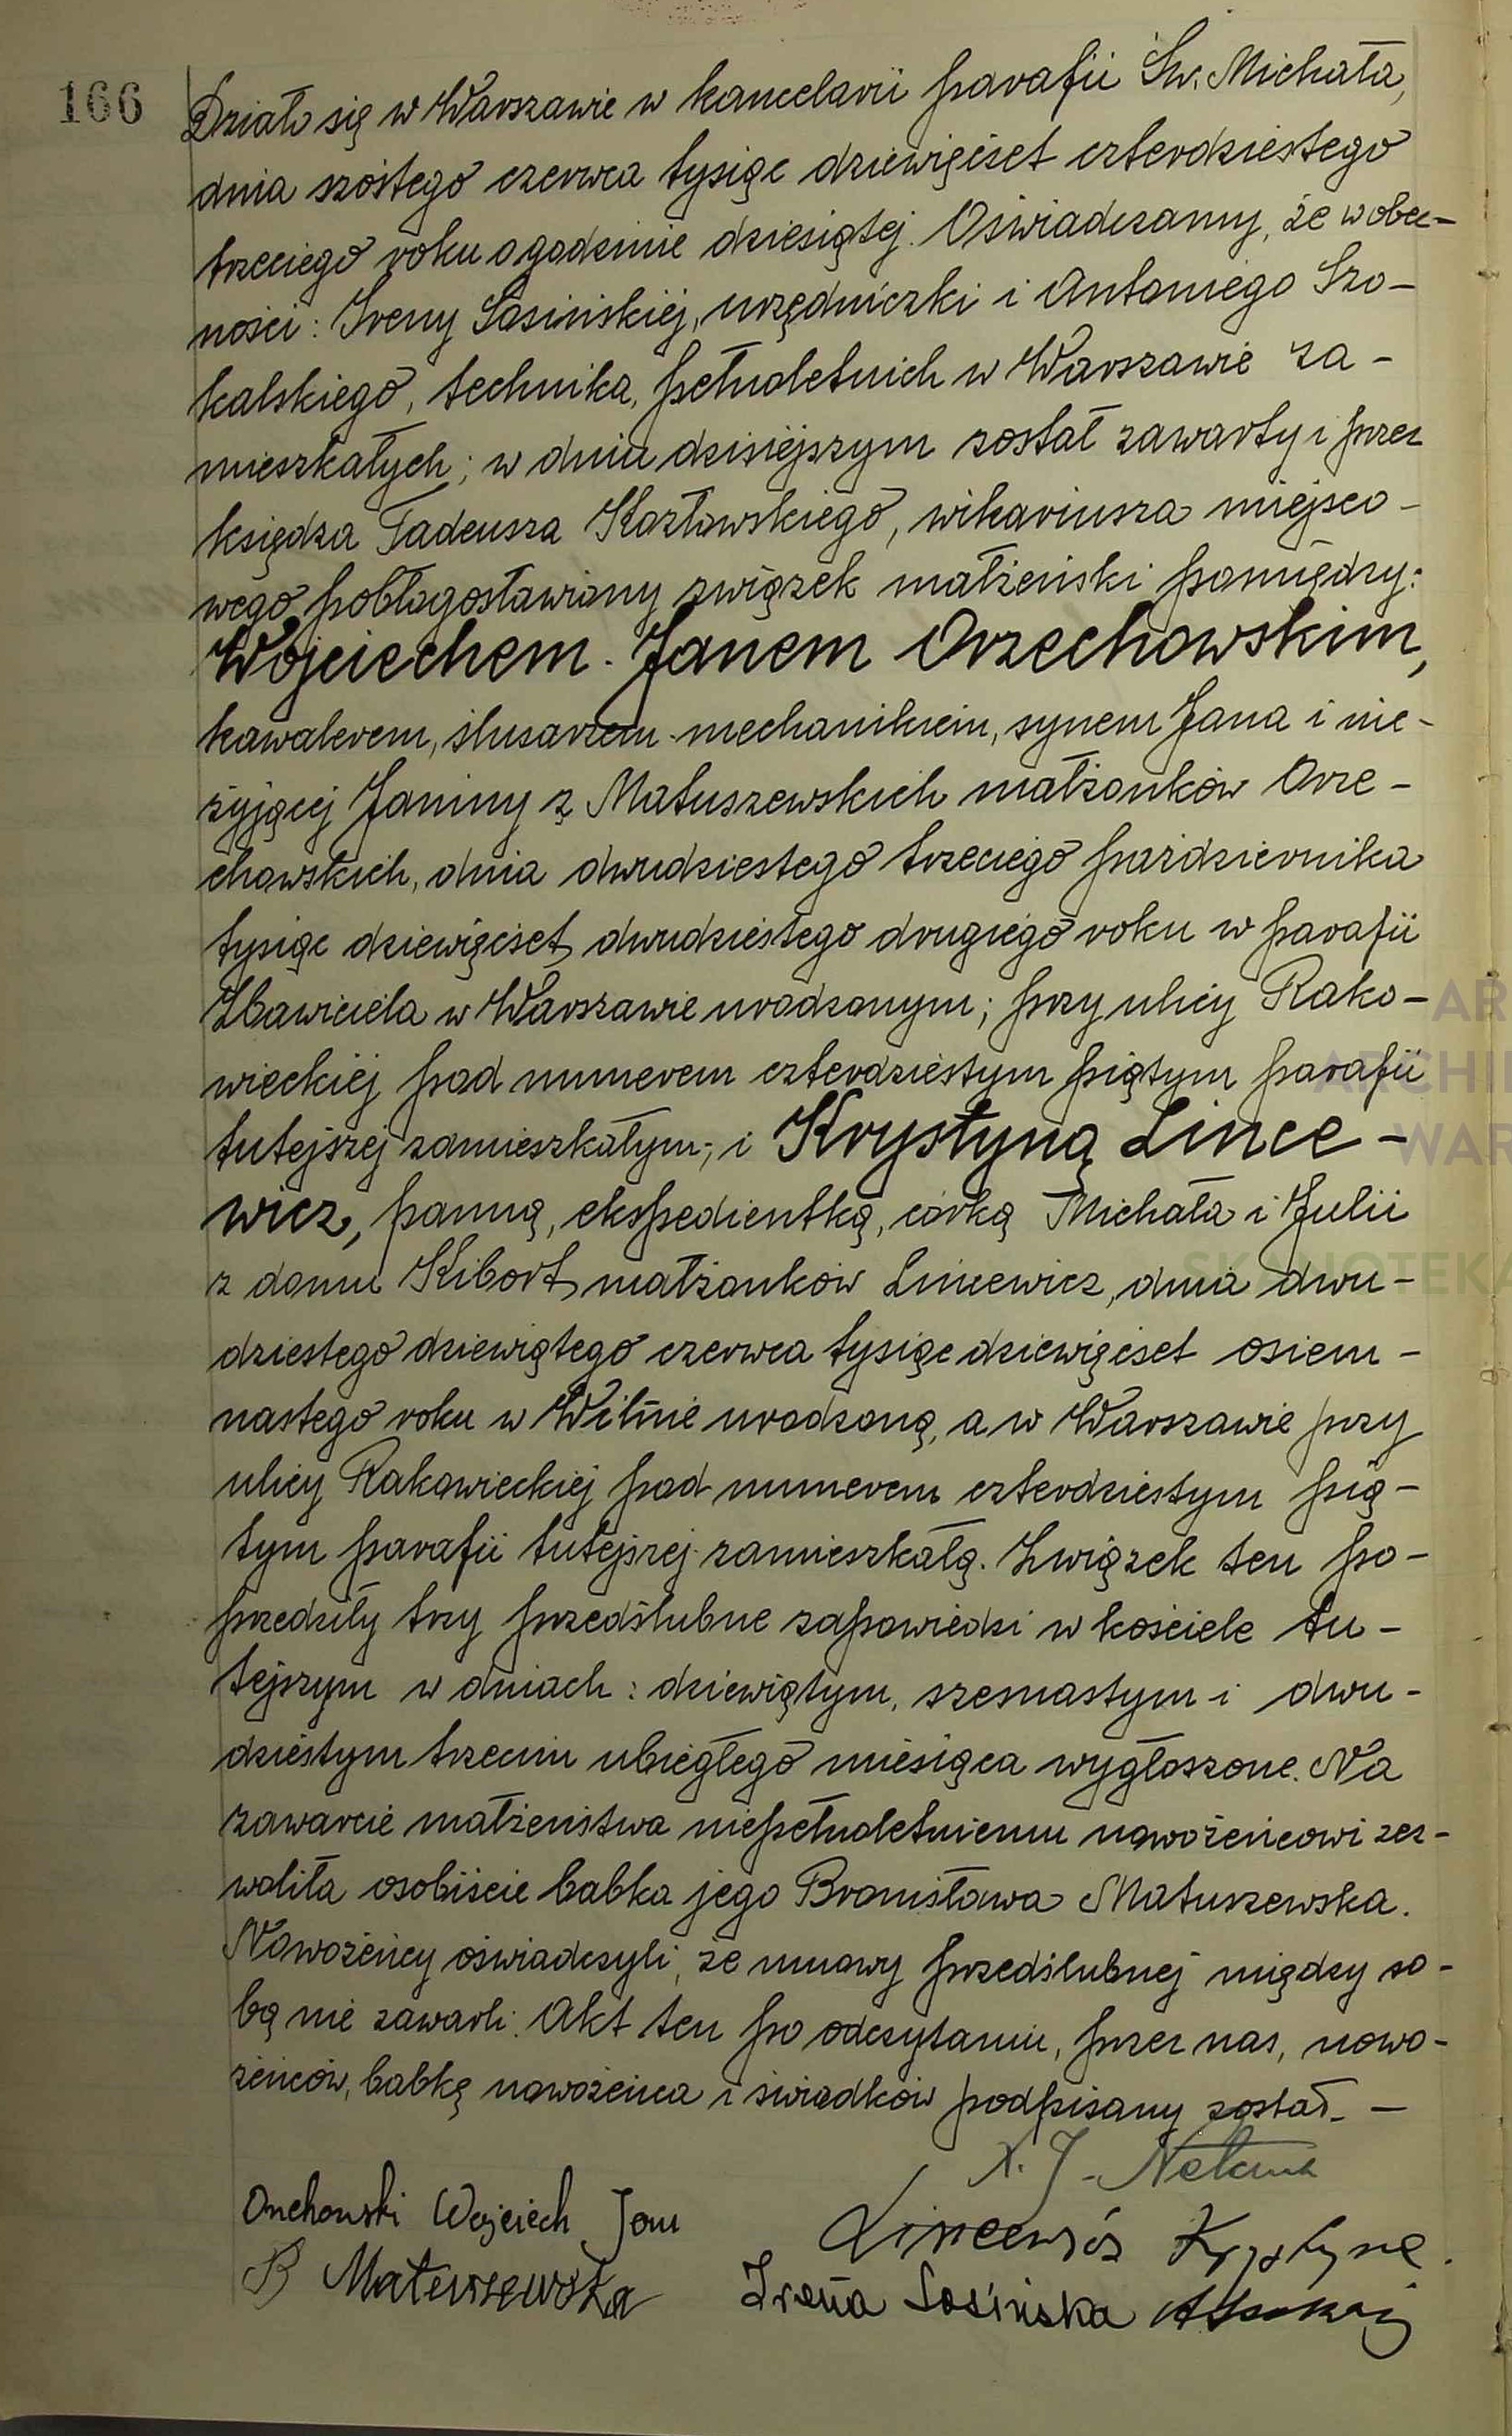 166
Działo się w Warszawie w kancelarii parafii Św. Michała,
dnia szóstego czerwca tysiąc dziewięćset czterdziestego
trzeciego roku o godzinie dziesiątej. Oświadczamy, że w obec-
ności: Ireny Sosińskiej, urzędniczki i Antoniego Szo-
kalskiego, technika, pełnoletnich w Warszawie za-
mieszkałych; w dniu dzisiejszym został zawarty i przez
księdza Tadeusza Kozłowskiego, wikariusza miejsco-
wego pobłogosławiony związek małżeński pomiędzy:
Wojciechem-Janem Orzechowskim,
kawalerem, ślusarzem-mechanikiem, synem Jana i nie-
żyjącej Janiny z Matuszewskich małżonków Orze-
chowskich, dnia dwudziestego trzeciego października
tysiąc dziewięćset dwudziestego drugiego roku w parafii
Zbawiciela w Warszawie urodzonym; przy ulicy Rako-
wieckiej pod numerem czterdziestym piątym parafii
tutejszej zamieszkałym; i Krystyną Lince-
wicz, panną, ekspedientką, córką Michała i Julii
z domu Kibort małżonków Lincewicz, dnia dwu-
dziestego dziewiątego czerwca tysiąc dziewięćset osiem-
nastego roku w Wilnie urodzoną, a w Warszawie przy
ulicy Rakowieckiej pod numerem czterdziestym pią-
tym parafii tutejszej zamieszkałą. Związek ten po-
przedziły trzy przedślubne zapowiedzi w kościele tu-
tejszym w dniach: dziewiątym, szesnastym i dwu-
dziestym trzecim ubiegłego miesiąca wygłoszone. Na
zawarcie małżeństwa niepełnoletniemu nowożeńcowi zez-
woliła osobiście babka jego Bronisława Matuszewska.
Nowożeńcy oświadczyli, że umowy przedślubnej między so-
bą nie zawarli. Akt ten po odczytaniu, przez nas, nowo-
żeńców, babkę nowożeńca i świadków podpisany został. —
X. J.
Orzechowski Wojciech Jan
Lincewicz Krystyna.
B Matuszewska
Irena Sosińska
AR
ARCHI
WAR
SKANOTEKA